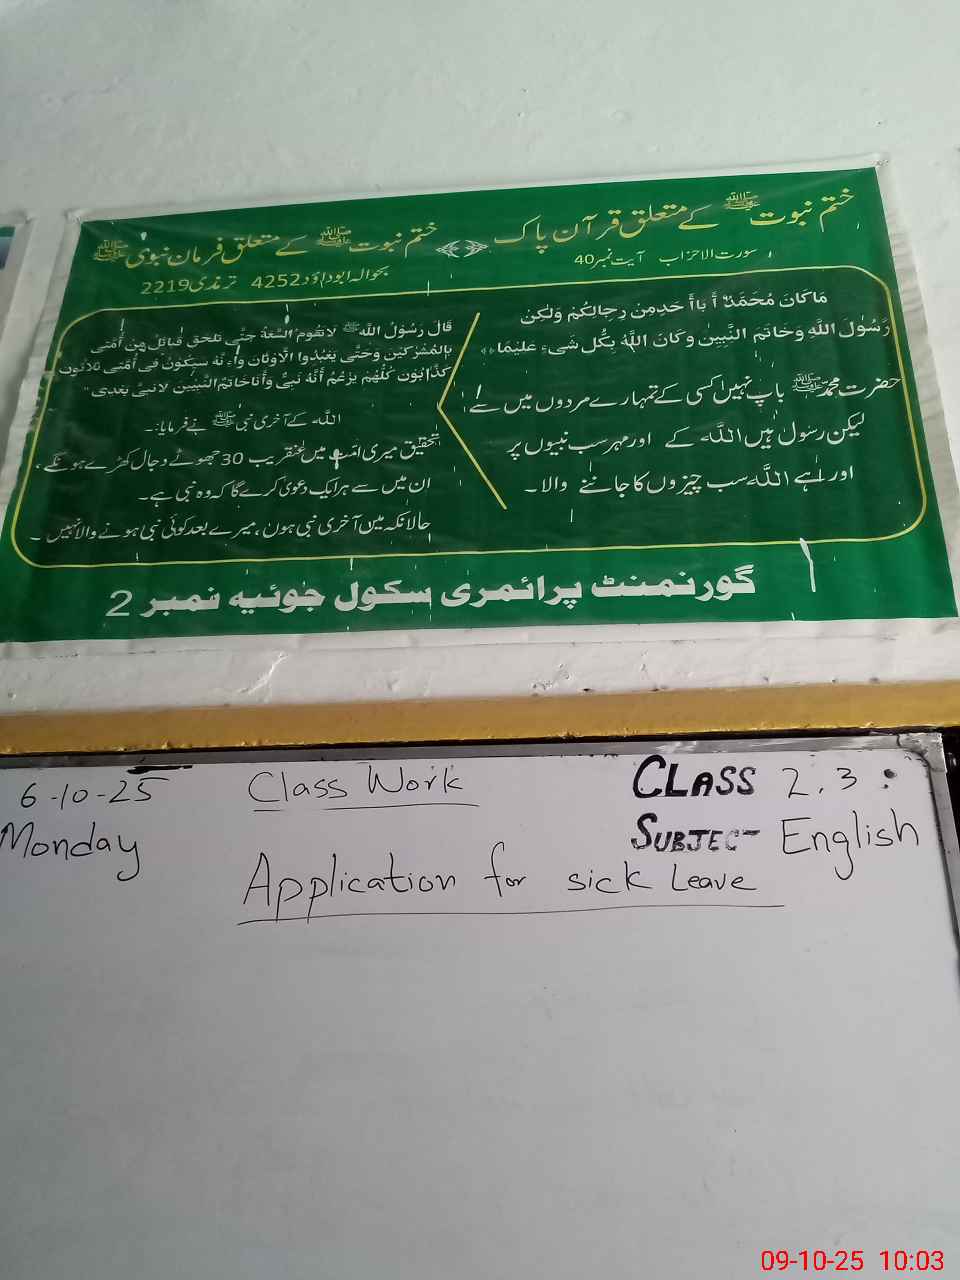 ختم نبوت ﷺ کے متعلق قرآن پاک
سورت الاحزاب آیت نمبر 40
ختم نبوت ﷺ کے متعلق فرمان نبوی ﷺ
بحوالہ ابوداؤد 4252 ترمذی 2219
مَاكَانَ مُحَمَّدٌ أَبَاأَ حَدٍمِن رِجالِكُمْ وَلَكِن
رَّسُولَ اللَّهِ وَخَاتَمَ النَّبِيِينَ وَكَانَ اللَّهُ بِكُلِ شَيْءٍ عَلِيْمًا
حضرت محمد ﷺ باپ نہیں کسی کے تمہارے مردوں میں سے
لیکن رسول ہیں اللہ کے اور مہر سب نبیوں پر
اور ہے اللہ سب چیزوں کا جاننے والا۔
قَالَ رَسُوْلُ اللّٰهِ ﷺ لَا تَقُومُ السَّعَةُ حَتَّى تَلْحَقَ قَبَائِلُ مِنْ أُمَّتِي
بِالْمُشْرِكِينَ وَحَتَّى يَعْبُدُوا الْأَوْثَانَ وَأَنَّهُ سَيَكُوْنُ فِي أُمَّتِي ثَلَاثُونَ
كَذَّابُونَ كُلُّهُمْ يَزْعُمُ أَنَّهُ نَبِيٌّ وَأَنَا خَاتَمُ النَّبِيِّينَ لَا نَبِيَّ بَعْدِي"
اللہ کے آخری نبی ﷺ نے فرمایا:۔
تحقیق میری امت میں عنقریب 30 جھوٹے دجال کھڑے ہونگے،
ان میں سے ہر ایک دعویٰ کرے گا کہ وہ نبی ہے۔
حالانکہ میں آخری نبی ہوں، میرے بعد کوئی نبی ہونے والا نہیں۔
گورنمنٹ پرائمری سکول جوئیہ نمبر 2
6-10-25 Class Work CLASS 2.3:
Monday SUBJEC- English
Application for sick Leave
09-10-25 10:03